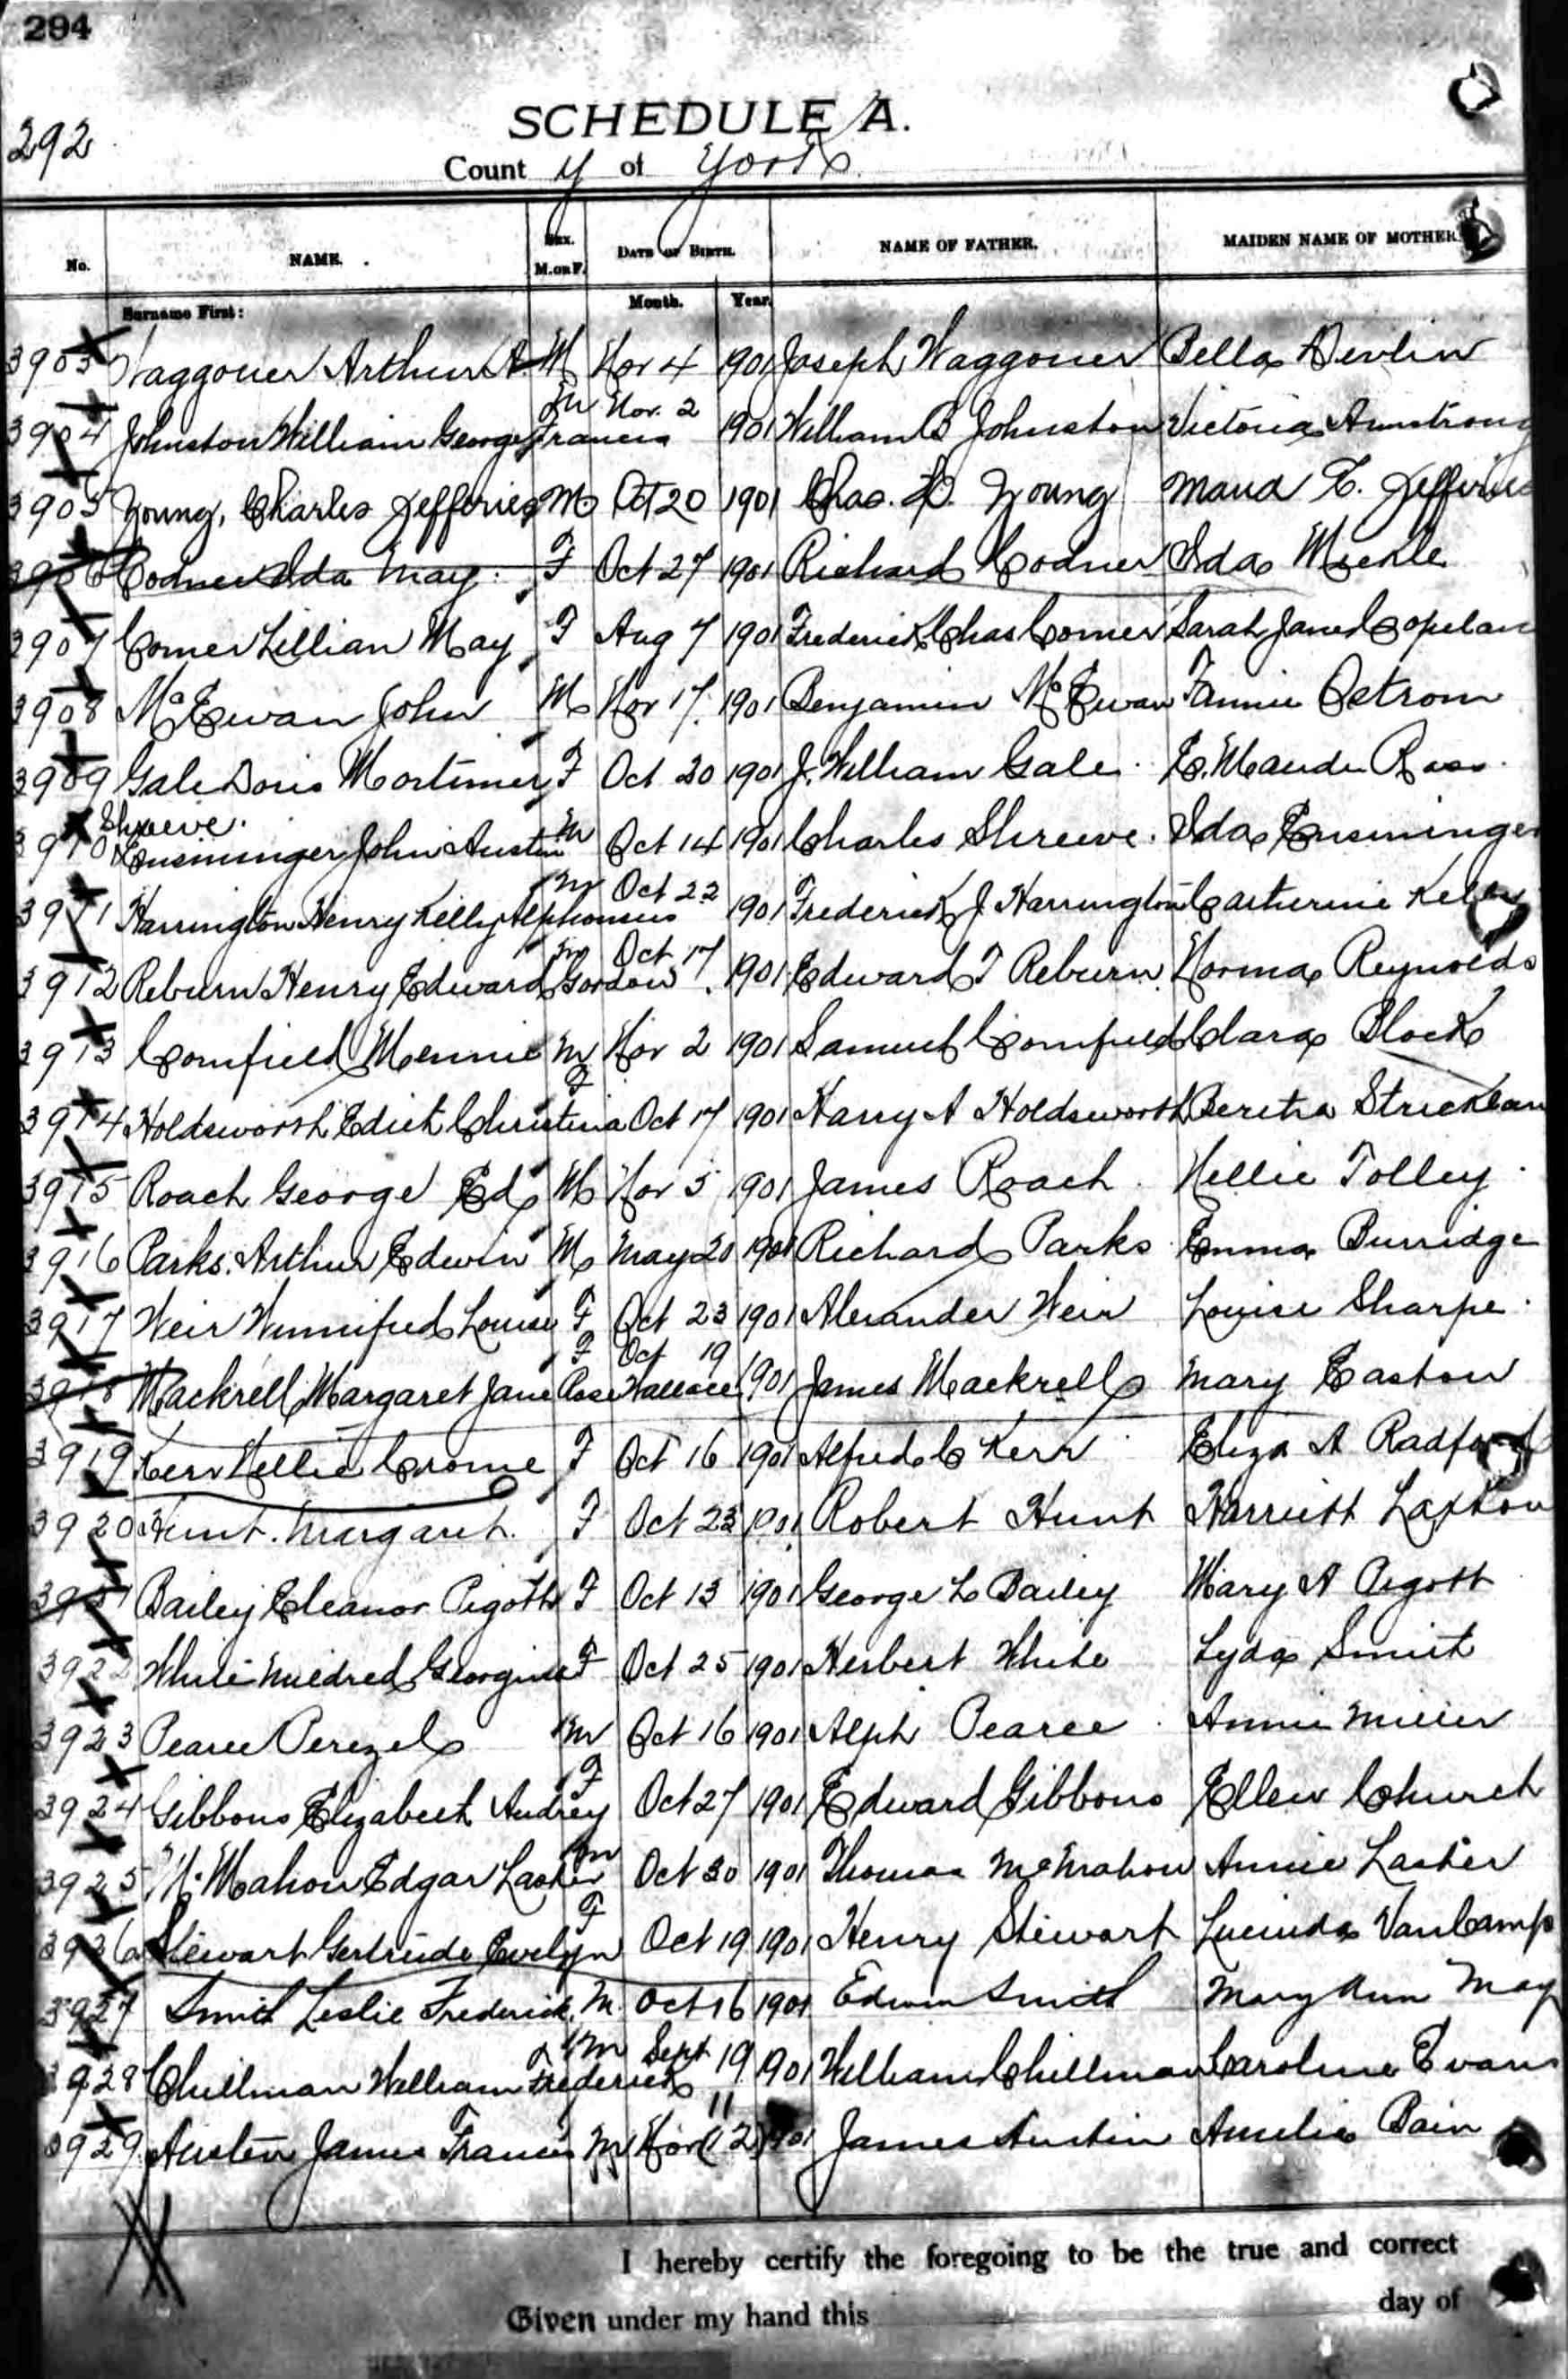 294
292
SCHEDULE A.
County of York
No. NAME. Sex. M. or F. DATE OF BIRTH. NAME OF FATHER. MAIDEN NAME OF MOTHER
Surname First: Month. Year.
3903 Waggoner Arthur A. M Nov 4 1901 Joseph Waggoner Bella Devlin
3904 Johnston William George Francis M Nov. 2 1901 William B Johnston Victoria Armstrong
3905 Young, Charles Jefferies M Oct 20 1901 Chas. Young Maud E. Jefferies
3906 Codner Ida May F Oct 27 1901 Richard Codner Ida
3907 Comer Lillian May F Aug 7 1901 Frederick Chas Comer Sarah Jane Copelan
3908 McEwan John M Nov 17. 1901 Benjamin McEwan Fannie Ostrom
3909 Gale Doris Mortimer F Oct 20 1901 J. William Gale E. Maude Ross
Shreeve.
3910 Ensminger John Austin M Oct 14 1901 Charles Shreeve. Ida Ensminger
3911 Harrington Henry Kelly Alphonsus M Oct 22 1901 Frederick J Harrington Catherine Kelly
3912 Reburn Henry Edward Gordon M Oct 17 1901 Edward T Reburn Norma Reynolds
3913 Cornfield Mennie M Nov 2 1901 Samuel Cornfield Clara Block
3914 Holdsworth Edith Christina F Oct 17 1901 Harry A Holdsworth Bertha Stricklan
3915 Roach George Ed M Nov 5 1901 James Roach Nellie Tolley
3916 Parks. Arthur Edwin M May 20 1901 Richard Parks Emma Burridge
3917 Weir Winnifred Louise F Oct 23 1901 Alexander Weir Louise Sharpe
3918 Mackrell Margaret Jane Rose Wallace F Oct 19 1901 James Mackrell Mary Easton
3919 Kerr Nellie Crome F Oct 16 1901 Alfred C Kerr Eliza A Radford
3920 Hunt. Margaret. F Oct 23 1901 Robert Hunt Harriett Laxton
3921 Bailey Eleanor Pigott F Oct 13 1901 George L Bailey Mary A Pigott
3922 White Mildred Georgina F Oct 25 1901 Herbert White Lyda Smith
3923 Pearce Perezel M Oct 16 1901 Alph Pearce Annie Miller
3924 Gibbons Elizabeth Audrey F Oct 27 1901 Edward Gibbons Ellen Church
3925 McMahon Edgar Lasher M Oct 30 1901 Thomas McMahon Annie Lasher
3926 Stewart Gertrude Evelyn F Oct 19 1901 Henry Stewart Lucinda VanCamp
3927 Smith Leslie Frederick. M. Oct 16 1901 Edwin Smith Mary Ann May
3928 Chillman William Frederick M Sept 19 1901 William Chillman Caroline Evans
3929 Austin James Francis M Nov (12) 11 1901 James Austin Amelia Bain
I hereby certify the foregoing to be the true and correct
Given under my hand this day of